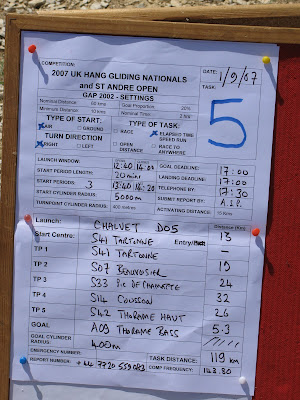 COMPETITION: DATE: 1/9/07
2007 UK HANG GLIDING NATIONALS
and ST ANDRE OPEN
GAP 2002 - SETTINGS
TASK: 5
Nominal Distance 60 kms Goal Proportion 20%
Minimum Distance 10 kms Nominal Time
TYPE OF START: TYPE OF TASK:
AIR GROUND RACE ELAPSED TIME SPEED RUN
TURN DIRECTION
RIGHT LEFT OPEN DISTANCE RACE TO ANYWHERE
LAUNCH WINDOW: 12:40 GOAL DEADLINE: 17:00
START PERIOD LENGTH: 20 mins LANDING DEADLINE: 17:00
START PERIODS 3 13:40 - 14:20 TELEPHONE BY: —
START CYLINDER RADIUS 5000m SUBMIT REPORT BY: A.12
TURNPOINT CYLINDER RADIUS 400 metres ACTIVATING DISTANCE 15 Kms
Launch: CHALVET D05 Distance (Km)
Start Centre: S41 TARTONNE Entry/ 13
TP 1 S41 TARTONNE —
TP 2 S07 BEAUVOSIER 19
TP 3 S33 Pic DE CHAMATTE 24
TP 4 S14 COUSSON 32
TP 5 S42 THORAME HAUT 26
GOAL A09 THORAME BASS 5.3
GOAL CYLINDER RADIUS: 400m
EMERGENCY NUMBER: TASK DISTANCE: 119 km
REPORT NUMBER: +44 7720 559083 COMP FREQUENCY: 143.80